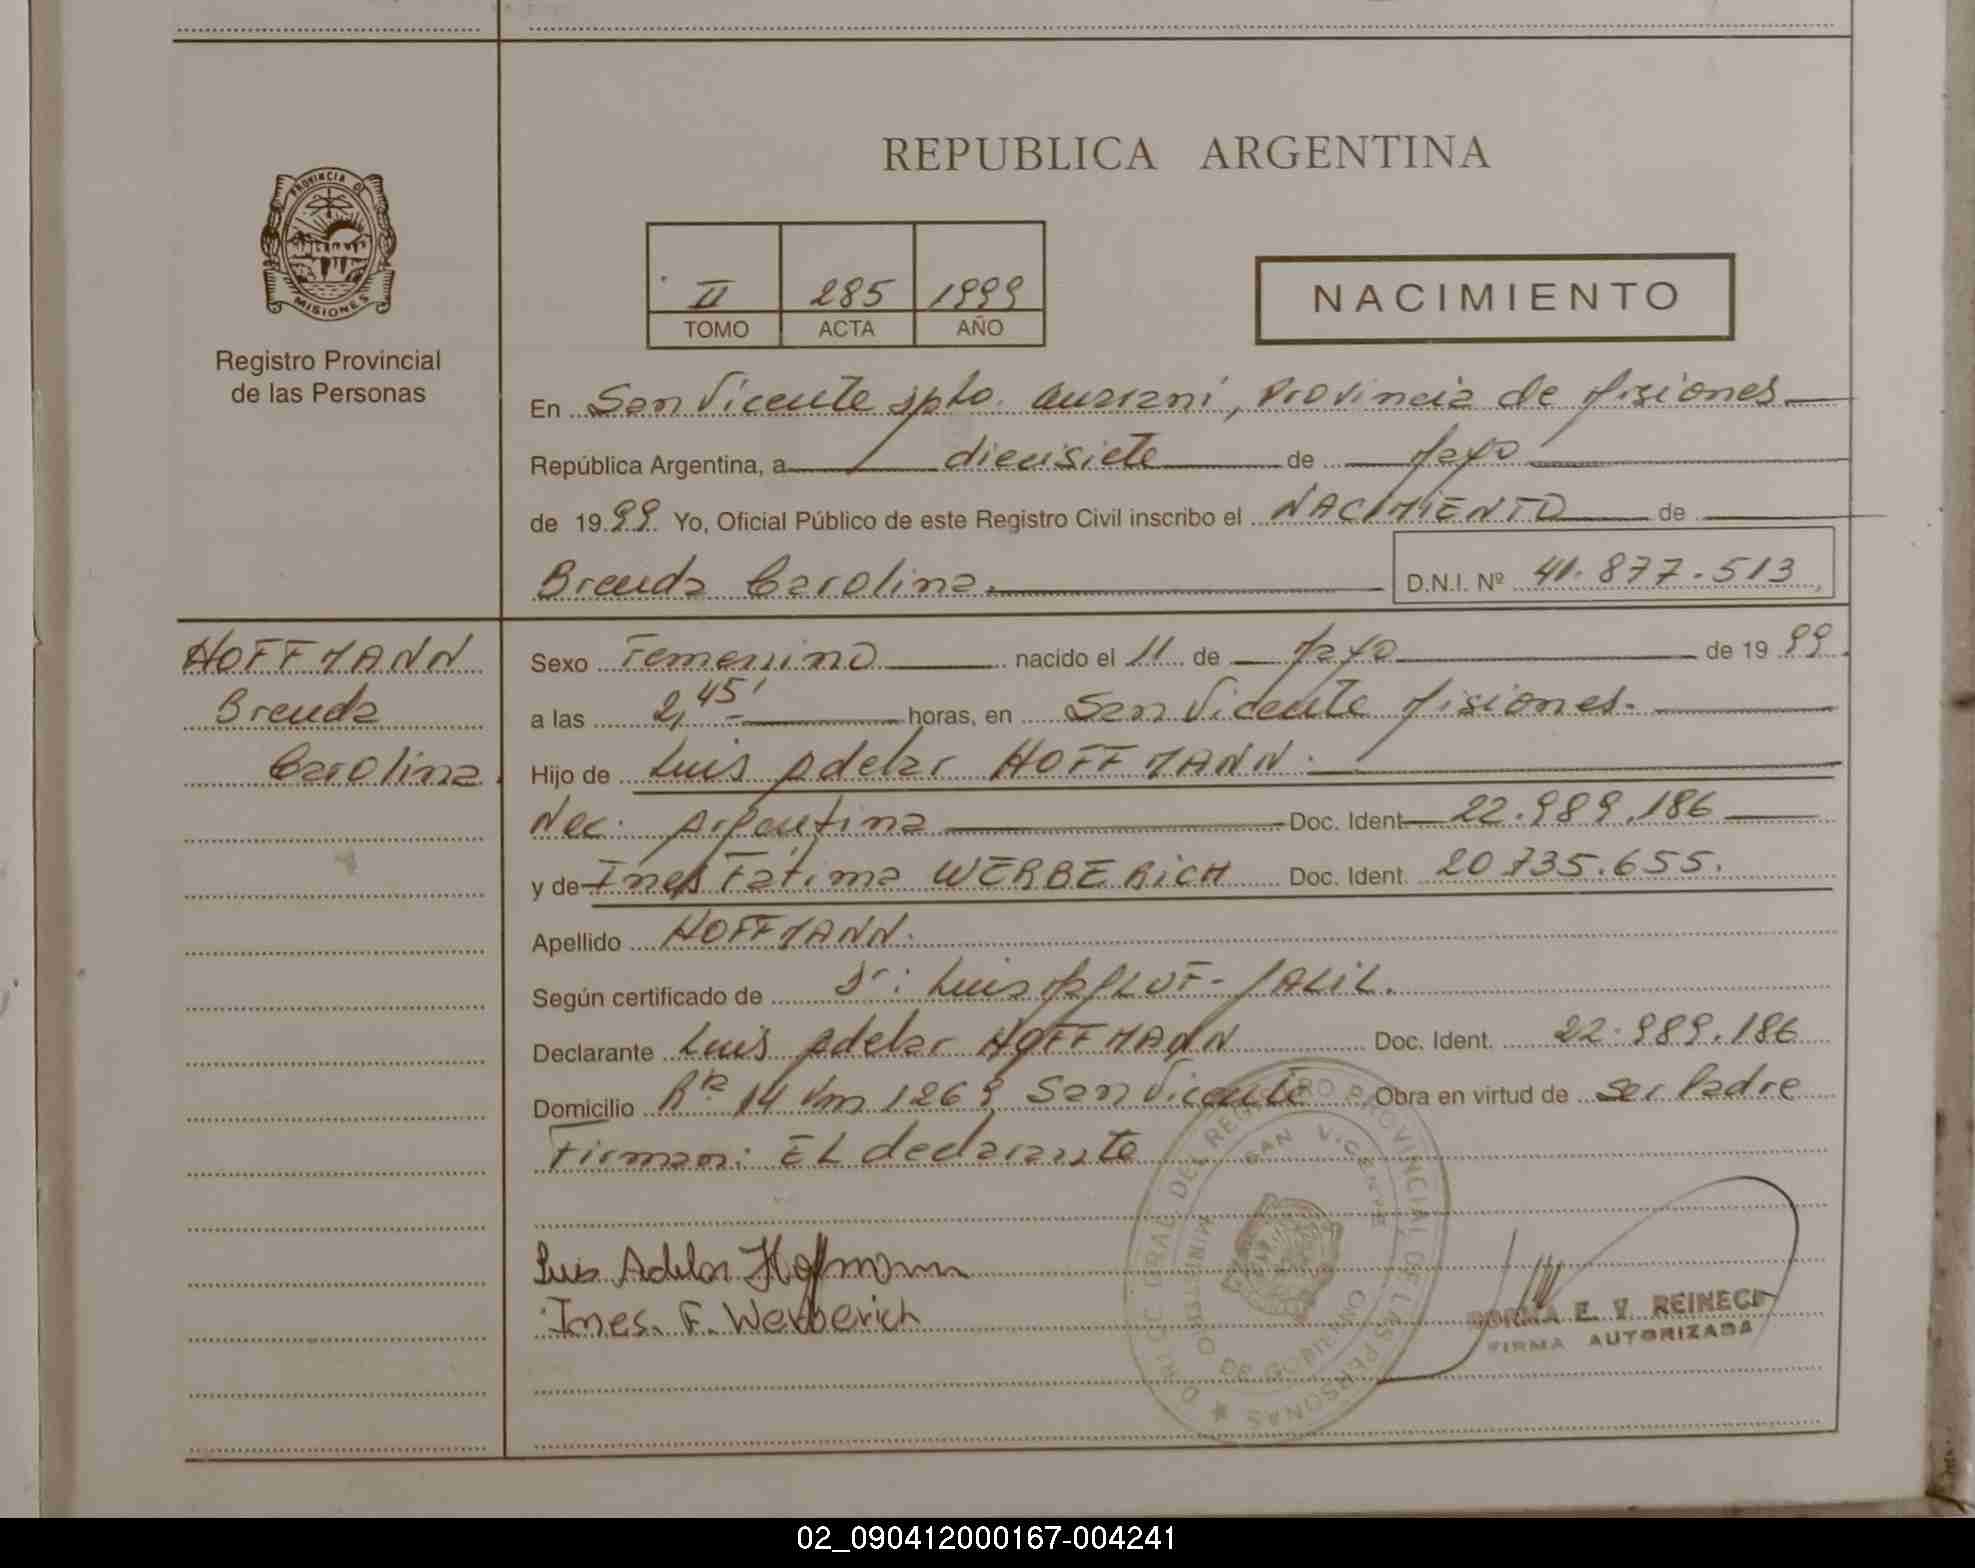 REPUBLICA ARGENTINA
PROVINCIA DE
MISIONES
Registro Provincial
de las Personas
II 285 1999
TOMO ACTA AÑO
NACIMIENTO
En San Vicente Dpto. Guaraní, Provincia de Misiones
República Argentina, a diecisiete de Mayo
de 1999 Yo, Oficial Público de este Registro Civil inscribo el NACIMIENTO de
Brenda Carolina. D.N.I. Nº 41.877.513
HOFFMANN
Brenda
Carolina.
Sexo Femenino nacido el 11 de Mayo de 1999.
a las 2,45' horas, en San Vicente Misiones.
Hijo de Luis Adelar HOFFMANN.
Nac. Argentina Doc. Ident 22.989.186
y de Ines Fátima WERBERICH Doc. Ident. 20.735.655.
Apellido HOFFMANN.
Según certificado de Dr: Luis
Declarante Luis Adelar HOFFMANN Doc. Ident. 22.989.186
Domicilio Rta 14 Km 1269 San Vicente Obra en virtud de ser Padre
Firman: EL declarante
Luis Adelar Hoffmann
Ines. F. Werberich
DIR. GRAL. DEL REGISTRO PROVINCIAL DE LAS PERSONAS
SAN VICENTE
MINISTERIO DE GOBIERNO
NORMA E. V. REINECK
FIRMA AUTORIZADA
02_090412000167-004241